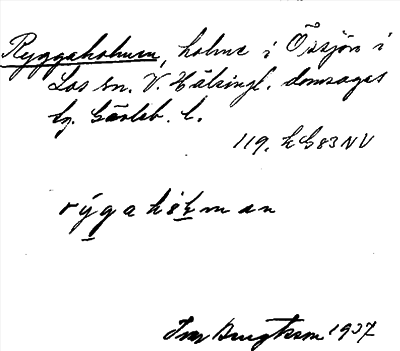 Ryggaholmen, holme i Össjön i
Los sn. V. Hälsingl. domsagas
tg. Gävleb. l.
119. h G 83 NV
rýgahòɫman
Ivar Bengtsson 1937